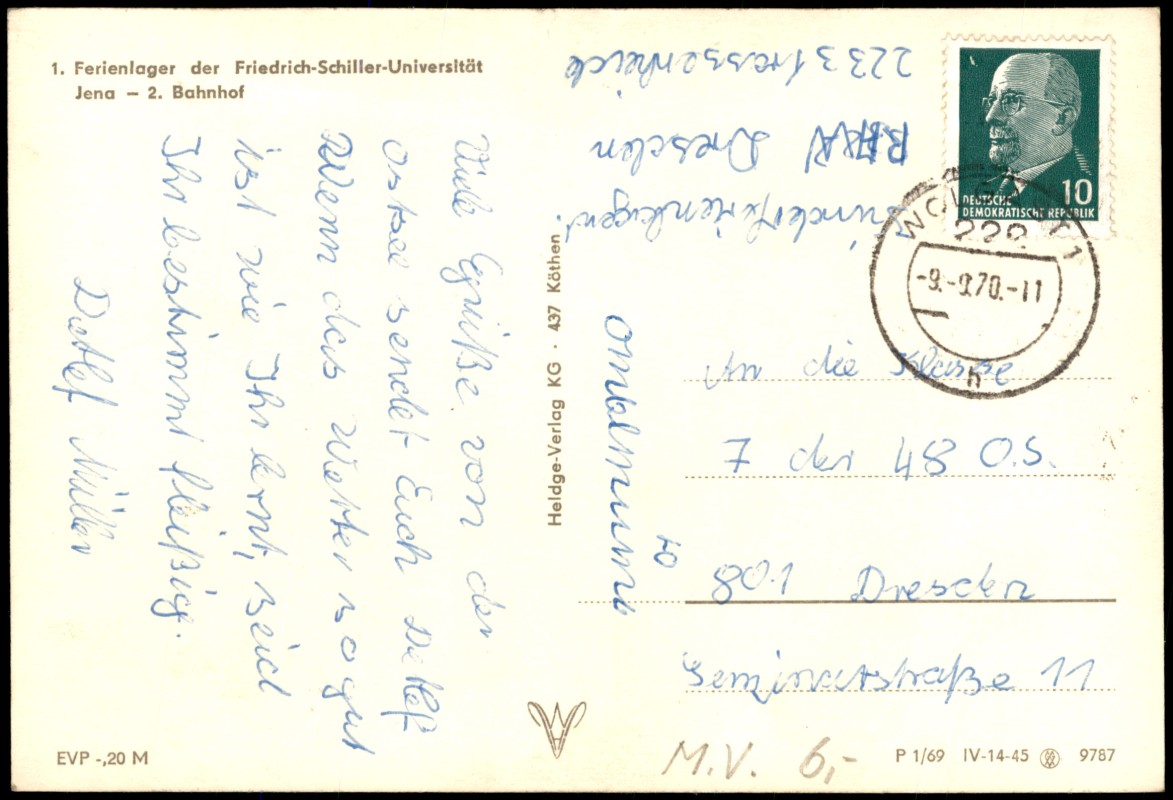 1. Ferienlager der Friedrich-Schiller-Universität
Jena – 2. Bahnhof
Viele Grüße von der
Ostsee sendet Euch Detlef
Wenn das Wetter so gut
ist wie Ihr lernt, seid
Ihr bestimmt fleißig.
Detlef Müller
Kinderferienlager
Dresden
2223 Trassenheide
DEUTSCHE
DEMOKRATISCHE REPUBLIK
10
WOLGAST 1
222
-9.-9.70.-11
h
An die Klasse
7 der 48 O.S.
801 Dresden
Seminarstraße 11
Heldge-Verlag KG · 437 Köthen
EVP -,20 M
M.V. 6,-
P 1/69 IV-14-45 9787